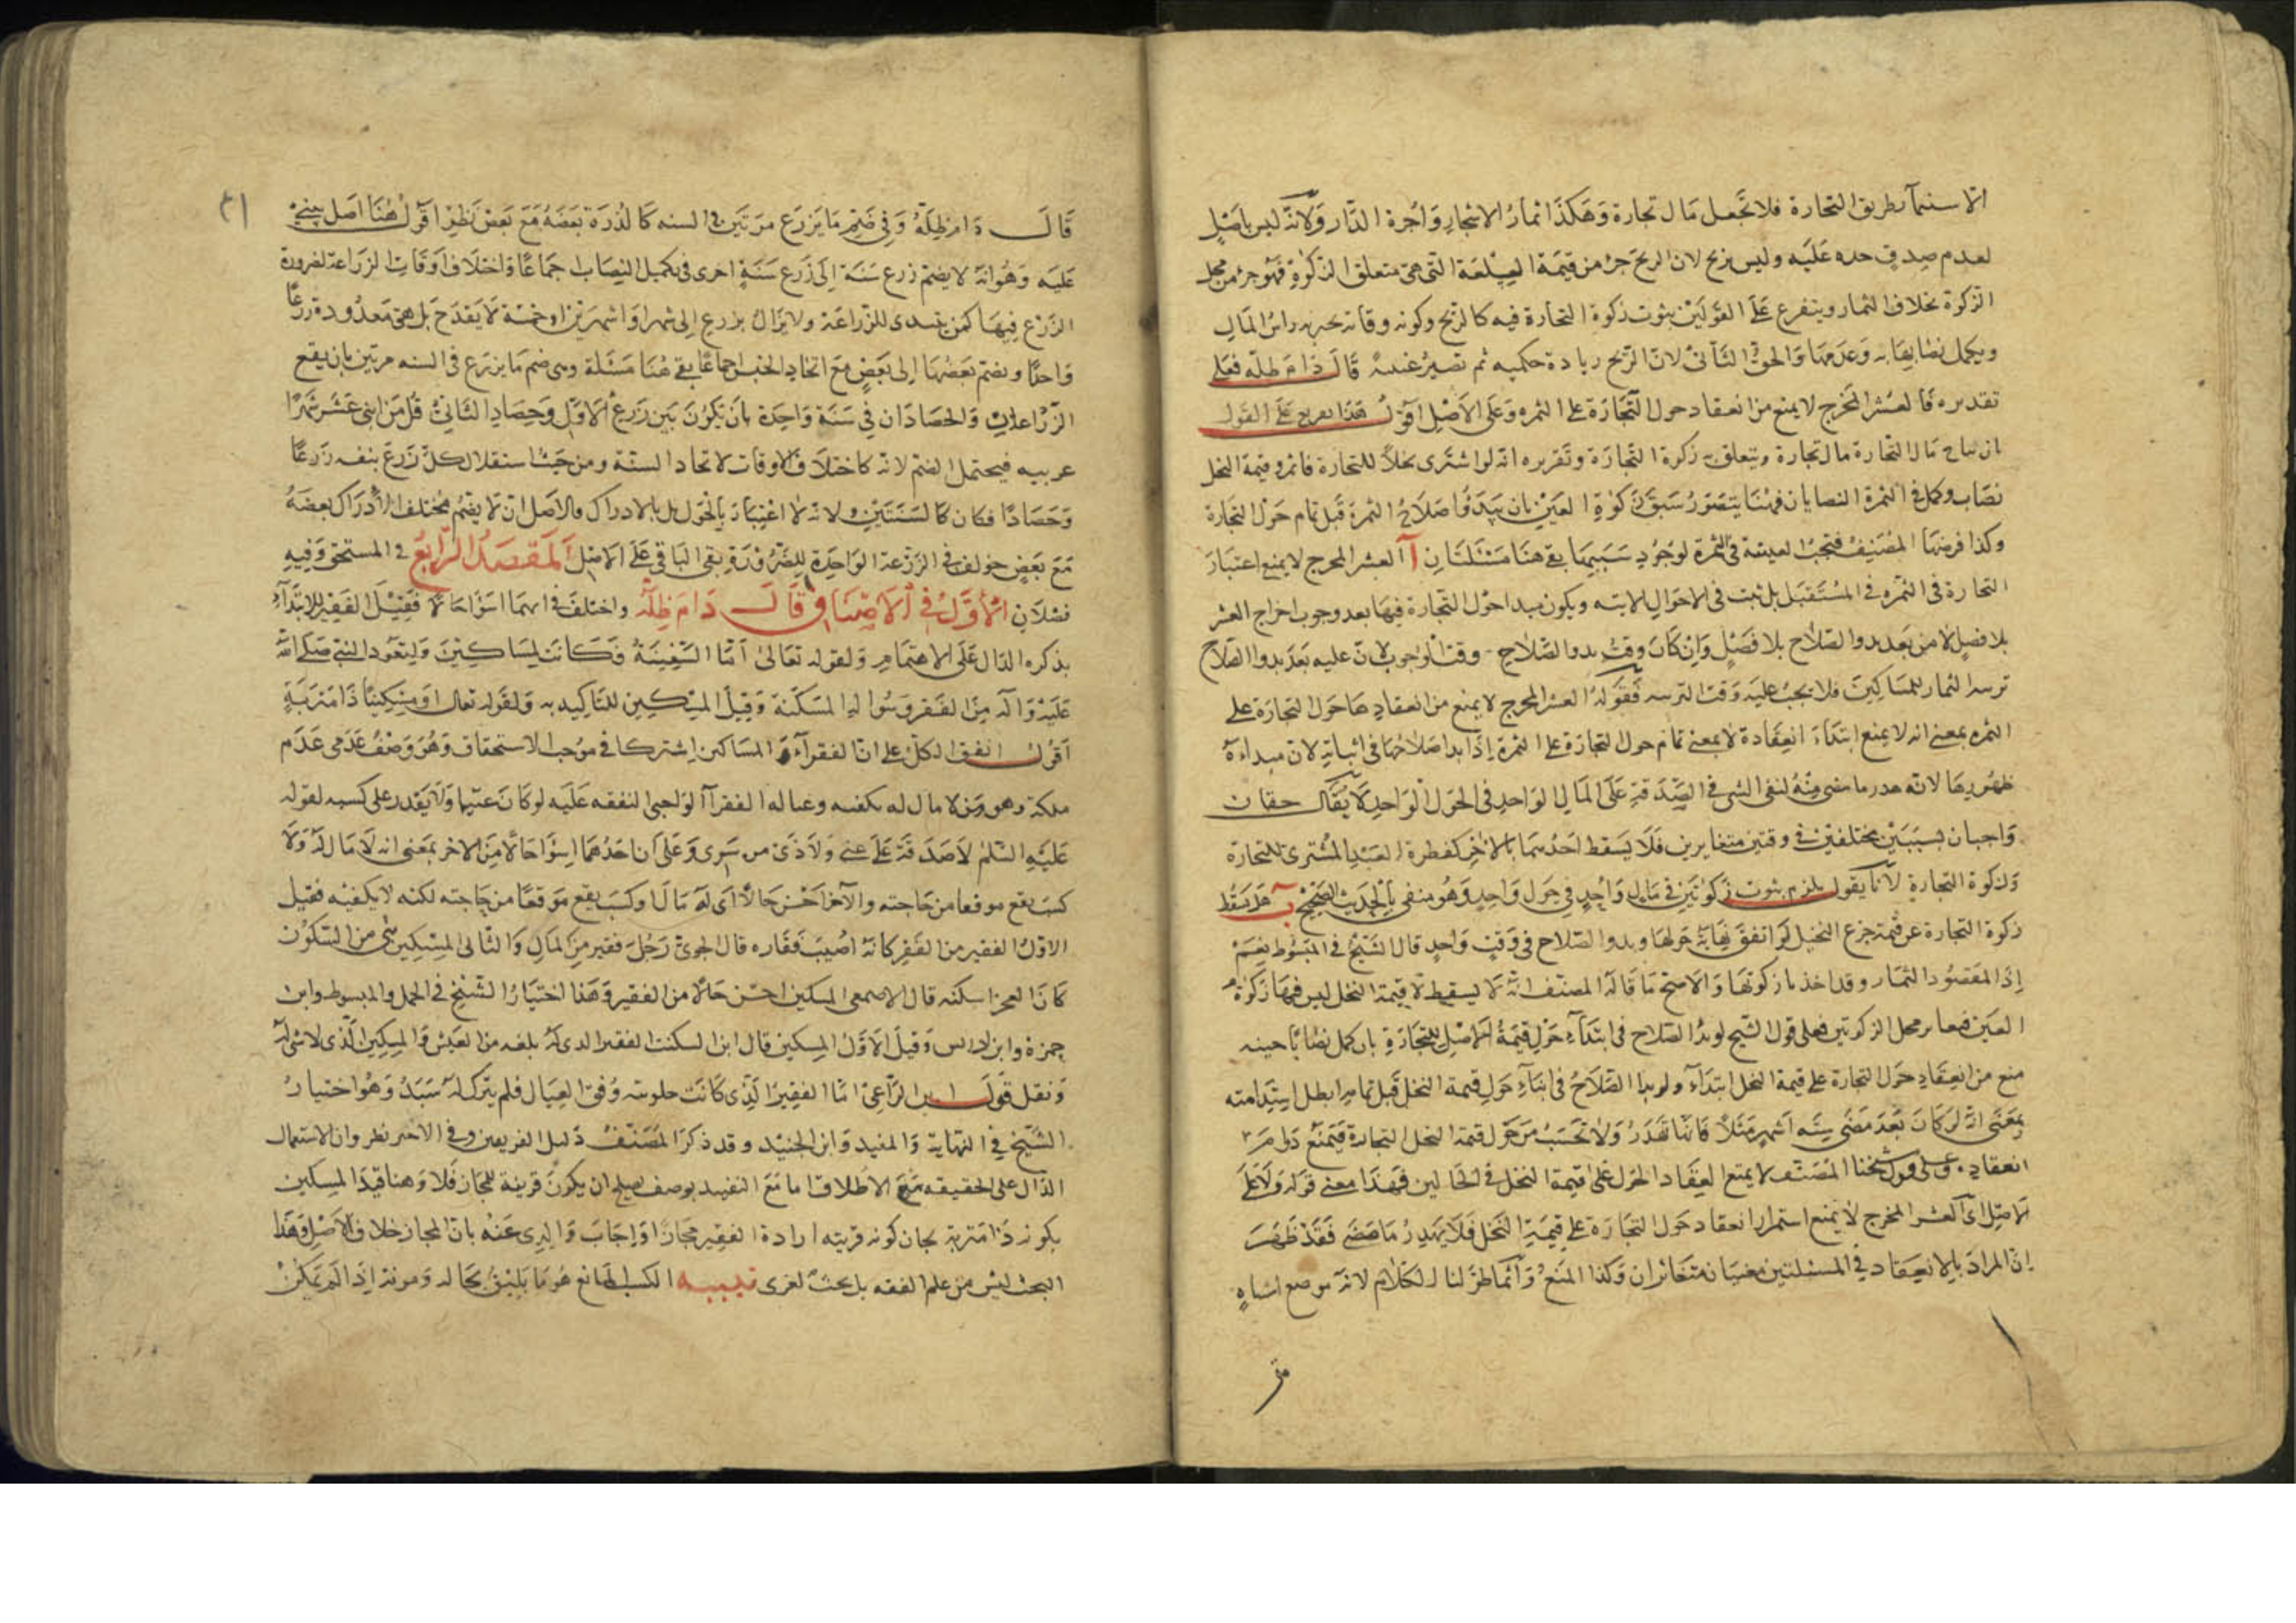 الاستنماء بطريق التجارة فلا تجعل مال تجارة وهكذا ثمار الاشجار واجرة الدار ولانه ليس باصل
لعدم صدق حده عليه وليس بربح لان الربح جزء من قيمة السلعة التي هي متعلق الزكوة فهو جزء من محل
الزكوة بخلاف الثمار ويتفرع على القولين ثبوت زكوة التجارة فيه كالربح وكونه وقاية راس المال
ويكمل نصابها به وعدمها والحق الثاني لان الربح زيادة حكميه ثم تصير عينيه قال دام ظله فعلى
تقديره فالعشر المخرج لا يمنع من انعقاد حول التجارة على الثمره وعلى الاصل اقول هذا تفريع على القول
ان نتاج مال التجارة مال تجارة ويتعلق به زكوة التجارة وتقريره انه لو اشترى نخلا للتجارة فاثمر وقيمة النخل
نصاب وكمل في الثمرة النصابان فهنا يتصور سبق زكوة العين بان يبدؤ اصلاح الثمرة قبل تمام حول التجارة
وكذا فرضها المصنف فتجب العينية في الثمرة لوجود سببها بقي هنا مسئلتان آ العشر المخرج لا يمنع اعتبار
التجارة في الثمره في المستقبل بل ثبت في الاحوال الاتيه ويكون مبدا حول التجارة فيها بعد وجوب اخراج العشر
بلا فصل لا من بعد بدو الصلاح بلا فصل وان كان وقت بدو الصلاح وقت الوجوب لان عليه بعد بدو الصلاح
تربيه الثمار للمساكين فلا يجب عليه وقت التربيه فقوله العشر المخرج لا يمنع من انعقادها حول التجارة على
الثمره بمعنى انه لا يمنع ابتداء انعقاده لا بمعنى تمام حول التجارة على الثمرة اذا بدا صلاحها في اثنائه لان مبداءه
ظهورها لانه هدر ما مضى منه لنفي الثنى في الصدقة على المال الواحد في الحول الواحد لا يقال حقان
واجبان بسببين مختلفين في وقتين متغايرين فلا يسقط احدهما بالاخر كفطرة العبد المشترى للتجارة
وزكوة التجارة لانا نقول يلزم ثبوت زكوتين في مال واحد في حول واحد وهو منفي بالحديث الصحيح ب هل يسقط
زكوة التجارة عن قيمة جزع النخيل لو اتفق نهاية حولها وبدو الصلاح في وقت واحد قال الشيخ في المبسوط نعم
اذ المقصود الثمار وقد اخذنا زكوتها والاصح ما قاله المصنف انه لا يسقط لان قيمة النخل ليس فيها زكوة
العين فتغاير محل الزكوتين فعلى قول الشيخ لو بدا الصلاح في ابتداء حول قيمة الاصل للتجارة بان كمل نصابا حينه
منع من انعقاد حول التجارة على قيمة النخل ابتداء ولو بدا الصلاح في اثناء حول قيمة النخل قبل تمامه ابطل استدامته
بمعنى انه لو كان بعد مضى سته اشهر مثلا فانها تهدر ولا تحسب من حول قيمة النخل التجارة فيمنع دوامه
انعقاده وعلى قول شيخنا المصنف لا يمنع انعقاد الحول على قيمة النخل في الحالين فهذا معنى قوله ولا على
الاصل اى العشر المخرج لا يمنع استمرار انعقاد حول التجارة على قيمة النخل فلا يهدر ما مضى فقد ظهر
ان المراد بالانعقاد في المسئلتين معنيان متغائران وكذا المنع وانما طولنا الكلام لانه موضع اشتباه
قال دام ظله وفي ضم ما يزرع مرتين في السنه كالذرة بعضه مع بعض نظر اقول هنا اصل يبنى
عليه وهو انه لا يضم زرع سنة الى زرع سنة اخرى في تكميل النصاب اجماعا واختلاف اوقات الزراعة لضرورة
الزرع فيها كمن يبتدى للزراعة ولا يزال يزرع الى شهر او اشهرين او خمسة لا يقدح بل هي معدودة زرعا
واحدا ويضم بعضها الى بعض مع اتحاد الجنس اجماعا بقي هنا مسئلة وهى ضم ما يزرع في السنه مرتين بان يقع
الزراعات والحصادان في سنة واحدة بان يكون بين زرع الاول وحصاد الثاني اقل من اثنى عشر شهرا
عربيه فيحتمل الضم لانه كاختلاف الاوقات لاتحاد السنة ومن حيث استقلال كل زرع بنفسه زرعا
وحصادا فكان كالسنتين ولانه لا اعتبار بالحول بل بالادراك والاصل ان لا يضم مختلف الادراك بعضه
مع بعض خولف في الزرعة الواحدة للضرورة بقي الباقي على الاصل المقصد الرابع في المستحق وفيه
فصلان الاول في الاصناف قال دام ظله واختلف في ايهما اسوا حالا فقيل الفقير للابتداء
بذكره الدال على الاهتمام ولقوله تعالى اما السفينة فكانت لمساكين وليتعوذ النبي صلى الله
عليه واله من الفقر وسواله المسكنة وقيل المسكين للتاكيد به ولقوله تعالى او مسكينا ذا متربة
اقول اتفق الكل على ان الفقراء والمساكين اشتركا في موجب الاستحقاق وهو وصف عدمى عدم
ملكة وهو من لا مال له يكفيه وعياله الفقراء الواجبى النفقه عليه لو كان غنيا ولا يقدر على كسبه لقوله
عليه السلم لا صدقة على غني ولا ذى مرة سوى وعلى ان احدهما اسوا حالا من الاخر بمعنى انه لا مال له ولا
كسب يقع موقعا من حاجته والاخر احسن حالا اى له مال او كسب يقع موقعا من حاجته لكنه لا يكفيه فقيل
الاول الفقير من الفقر كانه اصيب فقاره قال الجوهرى رجل فقير من المال والثانى المسكين من السكون
كان العجز اسكنه قال الاصمعى المسكين احسن حالا من الفقير وهذا اختيار الشيخ في الجمل والمبسوط وابن
حمزة وابن ادريس وقيل الاول المسكين قال ابن السكيت الفقير الذى له بلغه من العيش والمسكين الذى لا شى له
ونقل قول الراعى اما الفقير الذى كانت حلوبته وفق العيال فلم يترك له سبد وهو اختيار
الشيخ في النهاية والمفيد وابن الجنيد وقد ذكر المصنف دليل الفريقين وفي الاخير نظر وان الاستعمال
الدال على الحقيقه مع الاطلاق اما مع التقييد بوصف يصلح ان يكون قرينة للمجاز فلا وهنا قيد المسكين
بكونه ذا متربة فجاز كونه قرينه ارادة الفقير مجازا واجاب والدى عنه بان المجاز خلاف الاصل وهذا
البحث ليس من علم الفقه بل بحث لغوى تنبيه الكسب المانع هو ما يليق بحاله ومونته اذا لم يكن